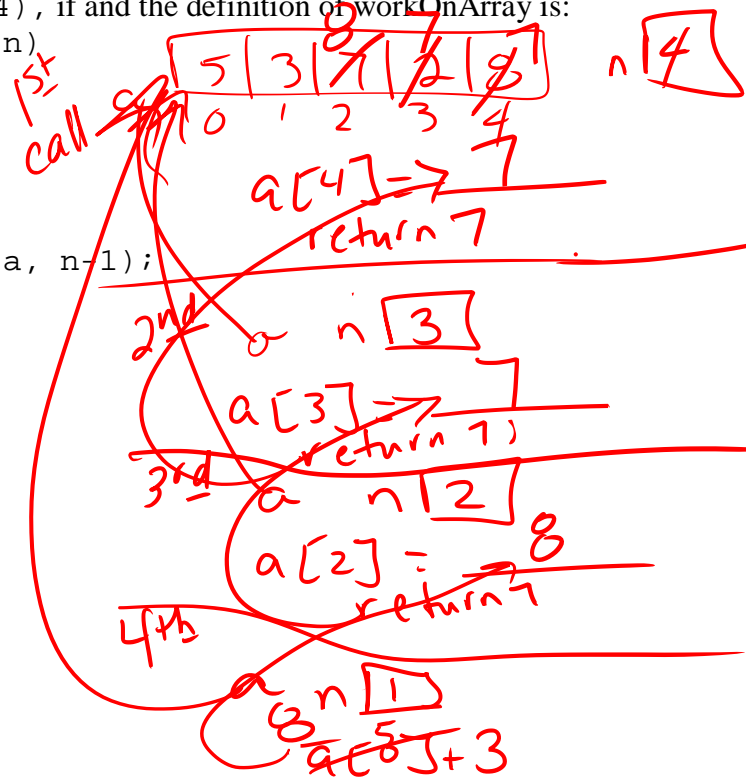 4), if and the definition of workOnArray is:
n)
8 7
1st call
5 3 7 2 8 n 4
0 1 2 3 4
a[4] = 7
return 7
a, n-1);
2nd a n 3
a[3] = 7
return 7
3rd a n 2
a[2] = 8
return 7
4th
a n 1
8
a[0] + 3